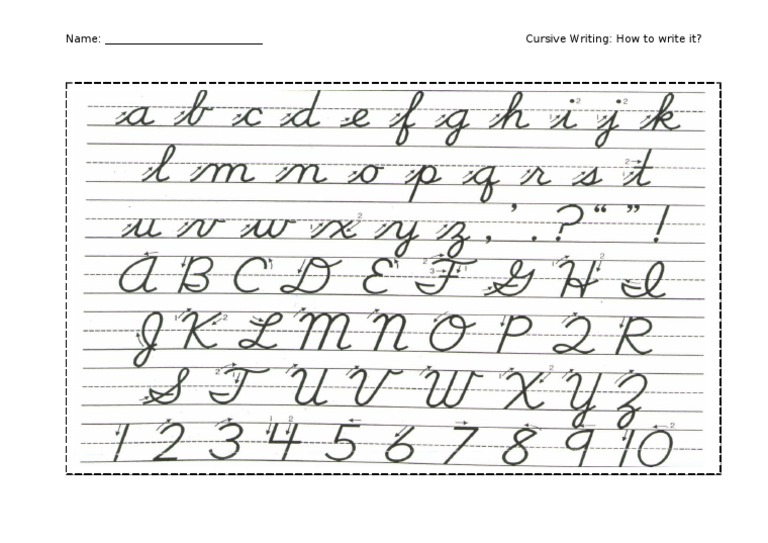 Name: ____________________ Cursive Writing: How to write it?
a b c d e f g h i j k
l m n o p q r s t
u v w x y z , ' . ? “ ” !
A B C D E F G H I
J K L M N O P Q R
S T U V W X Y Z
1 2 3 4 5 6 7 8 9 10